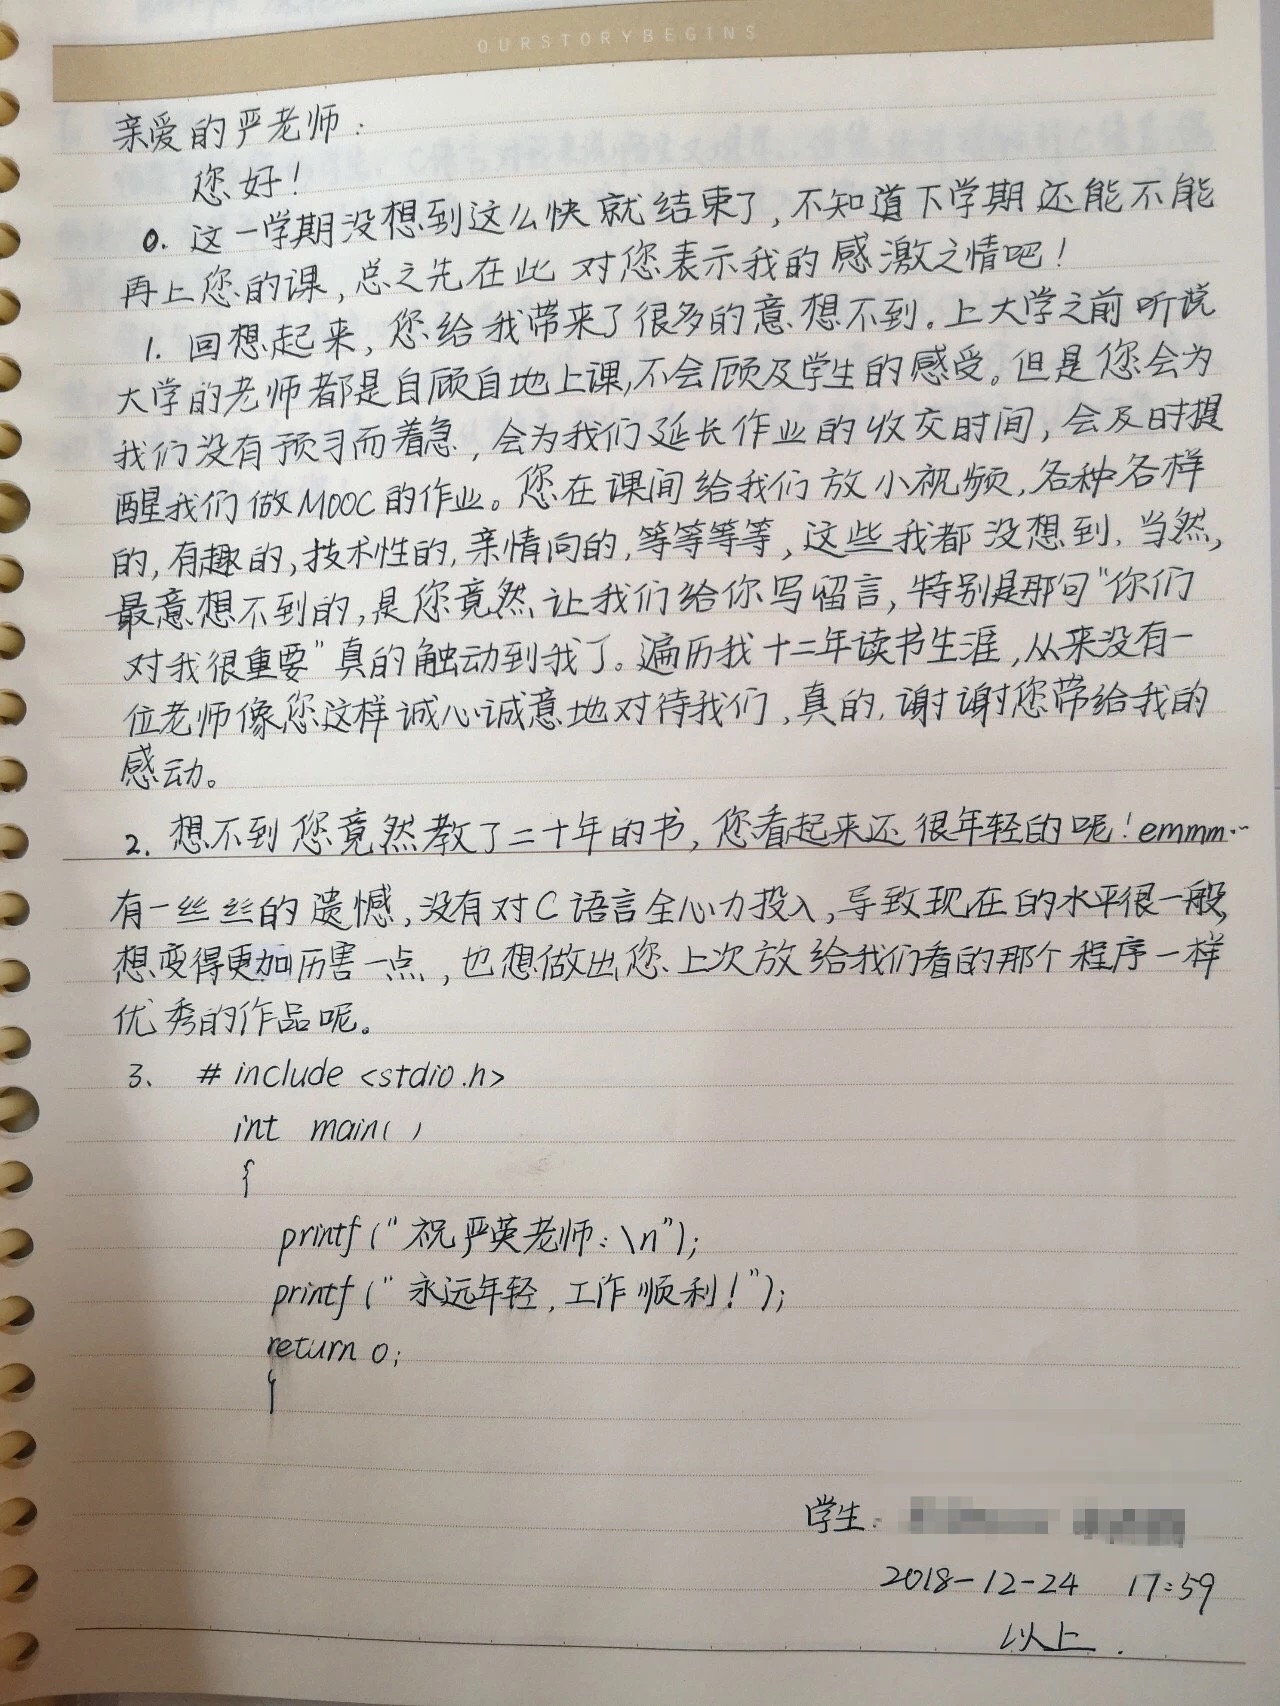 OURSTORYBEGINS
亲爱的严老师:
您好!
0. 这一学期没想到这么快就结束了,不知道下学期还能不能
再上您的课,总之先在此对您表示我的感激之情吧!
1. 回想起来,您给我带来了很多的意想不到。上大学之前听说
大学的老师都是自顾自地上课,不会顾及学生的感受。但是您会为
我们没有预习而着急,会为我们延长作业的收交时间,会及时提
醒我们做MOOC的作业。您在课间给我们放小视频,各种各样
的,有趣的,技术性的,亲情向的,等等等等,这些我都没想到.当然,
最意想不到的,是您竟然让我们给你写留言,特别是那句"你们
对我很重要"真的触动到我了。遍历我十二年读书生涯,从来没有一
位老师像您这样诚心诚意地对待我们,真的.谢谢您带给我的
感动。
2. 想不到您竟然教了二十年的书,您看起来还很年轻的呢!emmm…
有一丝丝的遗憾,没有对C语言全心力投入,导致现在的水平很一般,
想变得更加厉害一点,也想做出您上次放给我们看的那个程序一样
优秀的作品呢。
3、 # include <stdio.h>
int main( )
{
printf("祝严英老师:\n");
printf("永远年轻,工作顺利!");
return 0;
}
学生:
2018-12-24 17:59
以上.